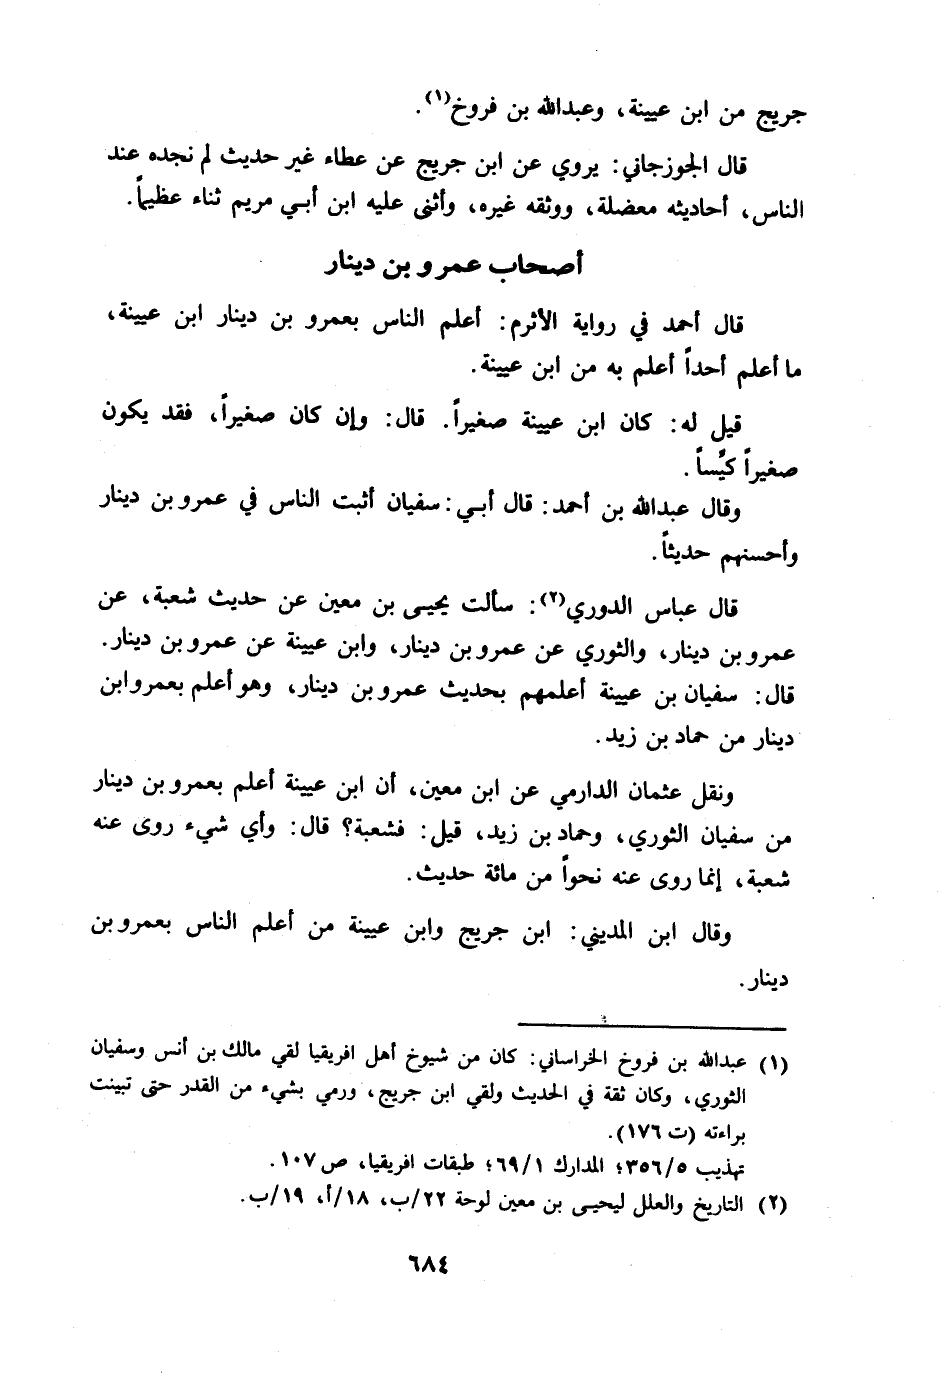 جريج من ابن عيينة، وعبدالله بن فروخ(١).
قال الجوزجاني: يروي عن ابن جريج عن عطاء غير حديث لم نجده عند
الناس، أحاديثه معضلة، ووثقه غيره، وأثنى عليه ابن أبـي مريم ثناء عظيماً.
أصحاب عمرو بن دينار
قال أحمد في رواية الأثرم: أعلم الناس بعمرو بن دينار ابن عيينة،
ما أعلم أحداً أعلم به من ابن عيينة.
قيل له: كان ابن عيينة صغيراً. قال: وإن كان صغيراً، فقد يكون
صغيراً كيِّساً.
وقال عبدالله بن أحمد: قال أبـي: سفيان أثبت الناس في عمرو بن دينار
وأحسنهم حديثاً.
قال عباس الدوري(٢): سألت يحيـى بن معين عن حديث شعبة، عن
عمرو بن دينار، والثوري عن عمرو بن دينار، وابن عيينة عن عمرو بن دينار.
قال: سفيان بن عيينة أعلمهم بحديث عمرو بن دينار، وهو أعلم بعمرو ابن
دينار من حماد بن زيد.
ونقل عثمان الدارمي عن ابن معين، أن ابن عيينة أعلم بعمرو بن دينار
من سفيان الثوري، وحماد بن زيد، قيل: فشعبة؟ قال: وأي شيء روى عنه
شعبة، إنما روى عنه نحواً من مائة حديث.
وقال ابن المديني: ابن جريج وابن عيينة من أعلم الناس بعمرو بن
دينار.
(١) عبدالله بن فروخ الخراساني: كان من شيوخ أهل افريقيا لقي مالك بن أنس وسفيان
الثوري، وكان ثقة في الحديث ولقي ابن جريج، ورمي بشيء من القدر حتى تبينت
براءته (ت ١٧٦).
تهذيب ٣٥٦/٥؛ المدارك ٦٩/١؛ طبقات افريقيا، ص ١٠٧.
(٢) التاريخ والعلل ليحيـى بن معين لوحة ٢٢/ب، ١٨/أ، ١٩/ب.
٦٨٤